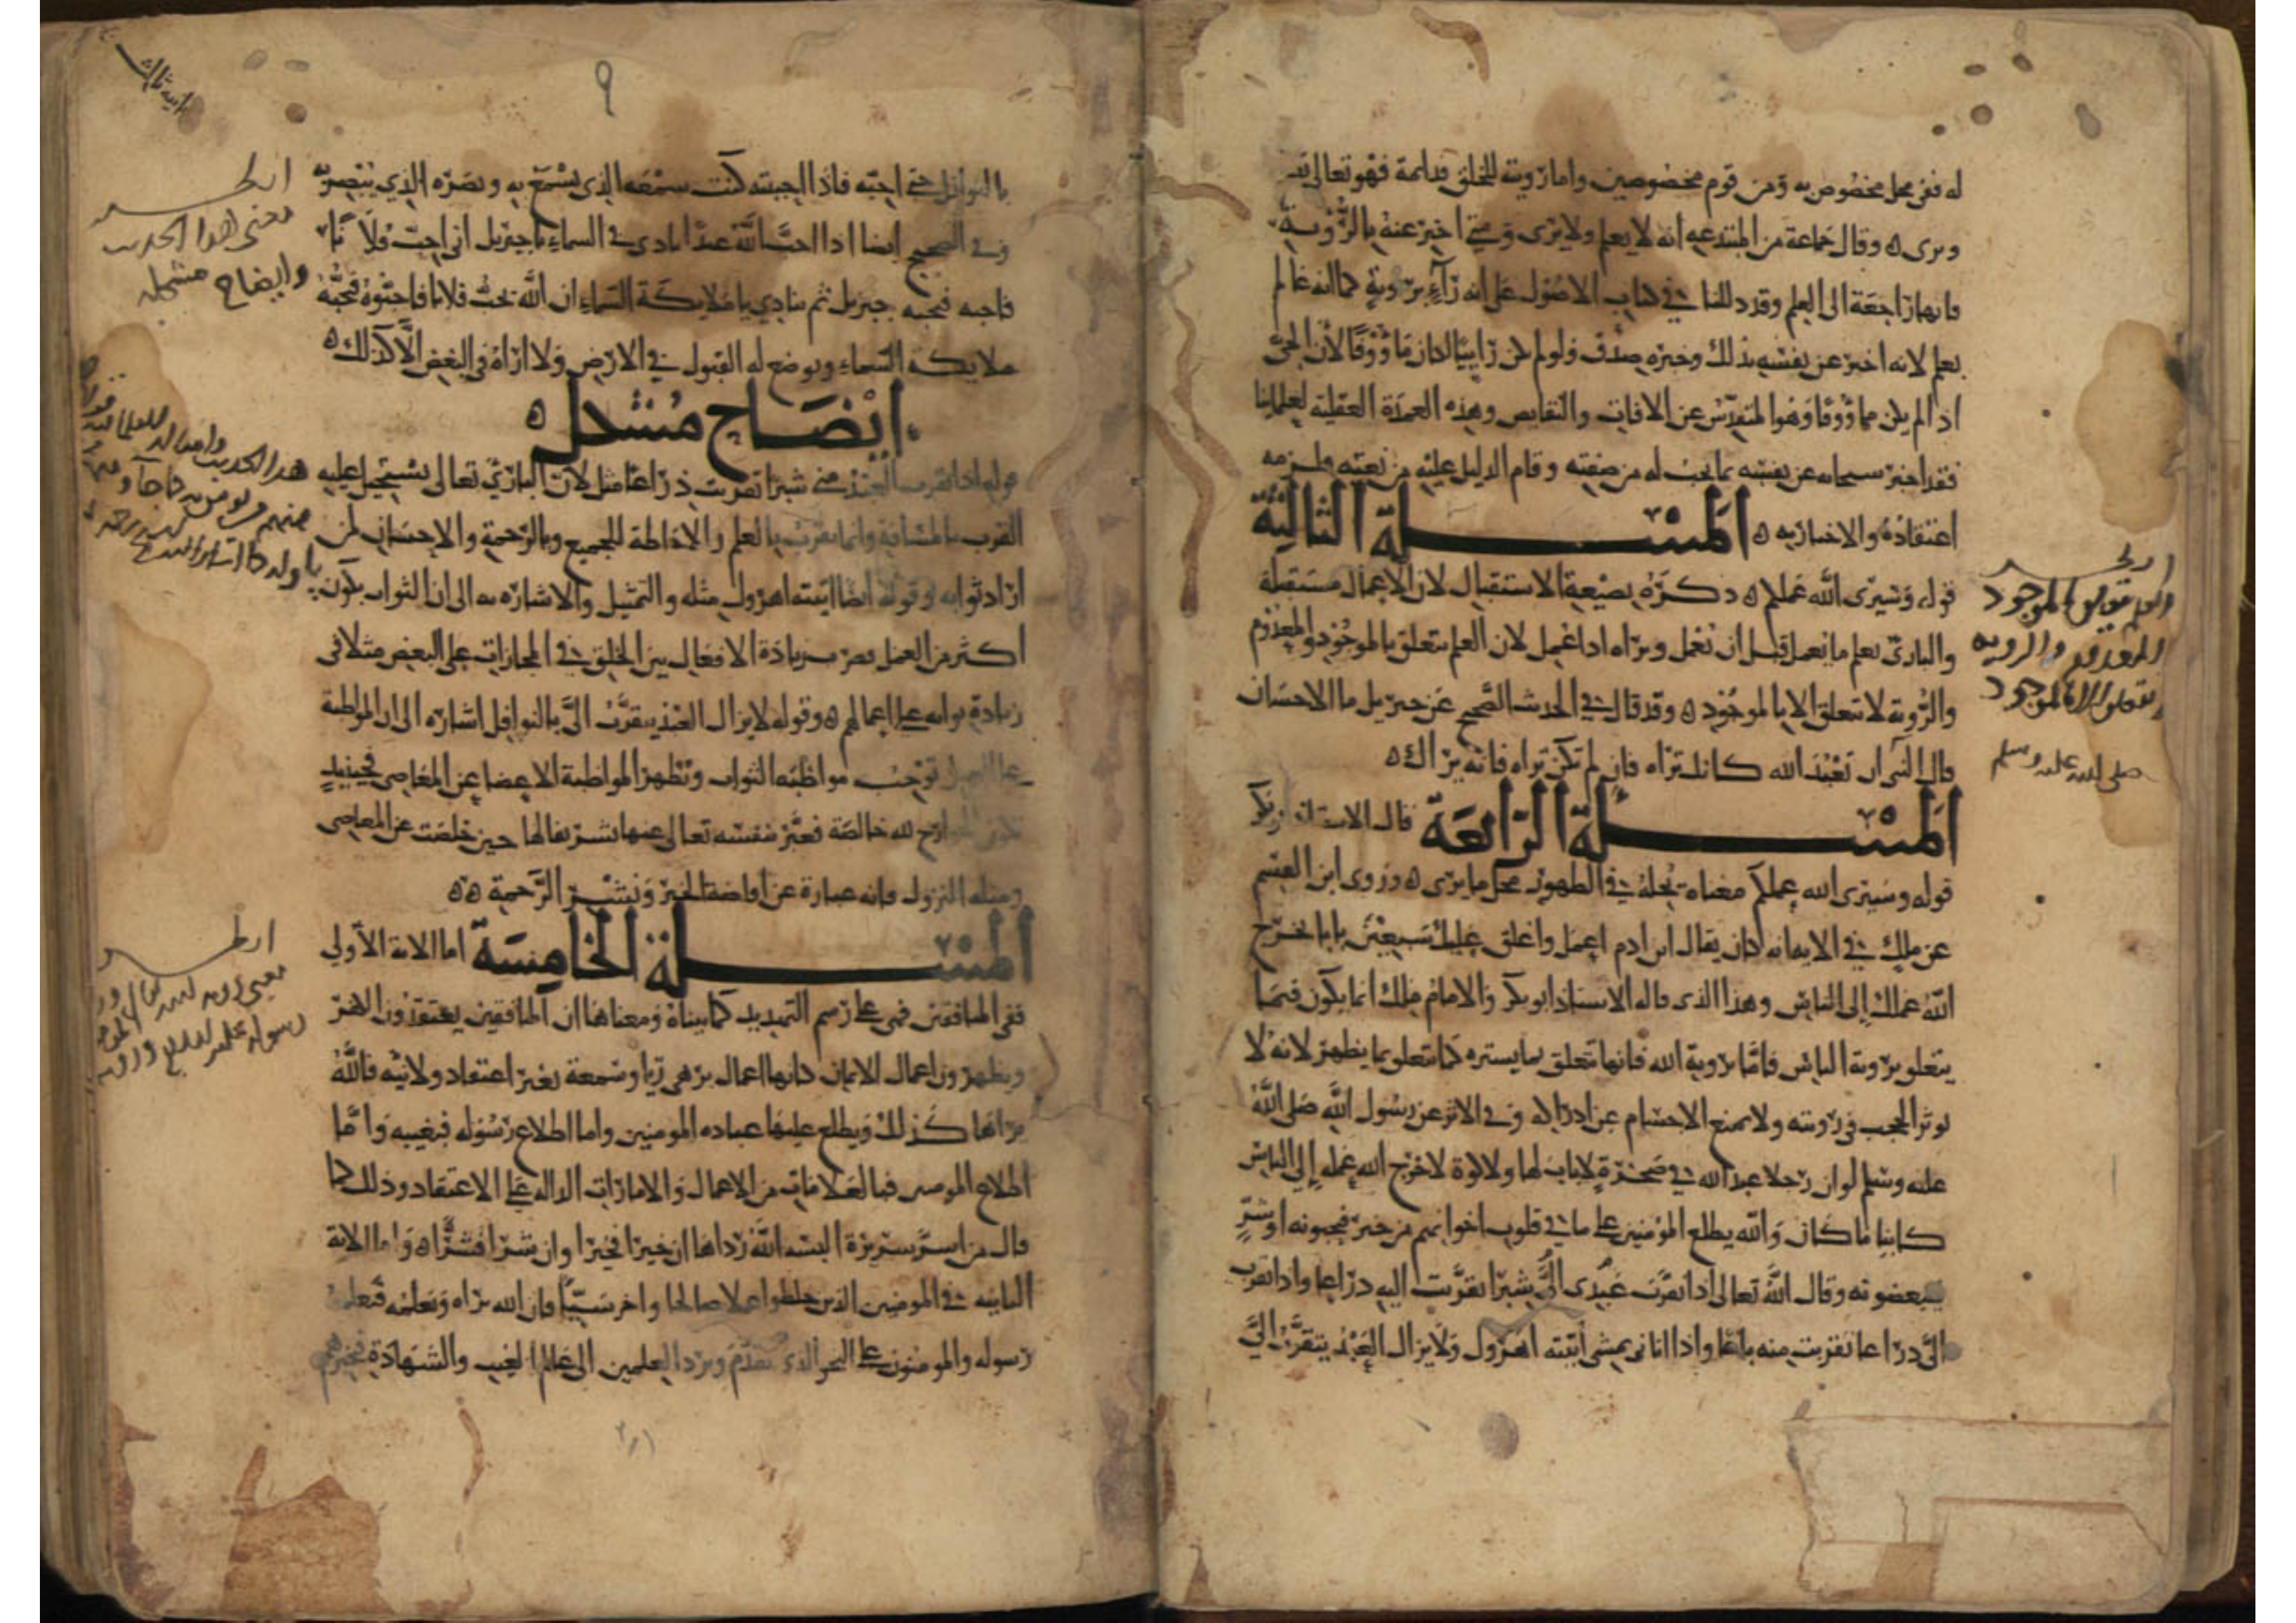 له ففي محل مخصوص به ومن قوم مخصوصين واما رؤيته للخلق فدائمة فهو تعالى
ويرى ه وقال جماعة من المبتدعه انه لا يعلم ولا يرى ومتى اخبر عنه بالرؤية
فانها راجعة الى العلم وقد دللنا في كتاب الاصول على انه رآء برؤية كما انه عالم
بعلم لانه اخبر عن نفسه بذلك وخبره صدق ولو لم يكن رائيا لكان مأووفا لان الحي
اذا لم يكن مأووفا وهو المتقدس عن الافات والنقايص وهذه العمدة العقلية لعلمائنا
فقد اخبر سبحانه عن نفسه بما يجب له من صفته وقام الدليل عليه من نعته فلزمه
اعتقاده والاخبار به ه المسئلة الثالثة
قوله وسيرى الله عملكم ه ذكره بصيغة الاستقبال لان الاعمال مستقبلة
والباري يعلم ما يعمل قبل ان يعمل ويراه اذا عمل لان العلم يتعلق بالموجود والمعدوم
والرؤية لا تتعلق الا بالموجود ه وقد قال في الحديث الصحيح عن جبريل ما الاحسان
قال النبي ان تعبد الله كانك تراه فان لم تكن تراه فانه يراك ه
المسئلة الرابعة قال الاستاذ ابو بكر
قوله وسيرى الله عملكم معناه يجعله في الظهور محل ما يرى ه وروى ابن القسم
عن ملك في الايه انه كان يقال ابن ادم اعمل واغلق عليك سبعين بابا يخرج
الله عملك الى الناس وهذا الذي قاله الاستاذ ابو بكر والامام ملك انما يكون فيما
يتعلق برؤية الناس فاما برؤية الله فانها تتعلق بما يستره كما تتعلق بما يظهر لانه لا
توثر الحجب في رؤيته ولا تمنع الاجسام عن ادراكه وفي الاثر عن رسول الله صلى الله
عليه وسلم لو ان رجلا عبد الله في صخرة لا باب لها ولا كوة لاخرج الله عمله الى الناس
كاينا ما كان والله يطلع المؤمنين على ما في قلوب اخوانهم من خير فيحبونه او شر
فيبغضونه وقال الله تعالى اذا تقرب عبدي الي شبرا تقربت اليه ذراعا واذا تقرب
الي ذراعا تقربت منه باعا واذا اتاني يمشي أتيته اهرول ولا يزال العبد يتقرب الي
العلم يتعلق بالموجود
والمعدوم والرويه
تتعلق الا بالموجود
صلى الله عليه وسلم
٩
بالنوافل حتى احبه فاذا احببته كنت سمعه الذي يسمع به وبصره الذي يبصر به
وفي الصحيح ايضا اذا احب الله عبدا نادى في السماء يا جبريل اني احب فلانا
فاحبه فيحبه جبريل ثم ينادي يا ملايكة السماء ان الله يحب فلانا فاحبوه فتحبه
ملايكة السماء ويوضع له القبول في الارض ولا اراه في البغض الا كذلك ه
ايضاح مشكل ه
قوله اذا تقرب العبد مني شبرا تقربت ذراعا مثل لان الباري تعالى يستحيل عليه
القرب بالمسافة وانما يقرب بالعلم والاحاطة للجميع وبالرحمة والاحسان لمن
اراد ثوابه وقوله ايضا اتيته اهرول مثله والتمثيل والاشاره به الى ان الثواب يكون
اكثر من العمل فضرب زيادة الافعال بين الخلق في المجازات على البعض مثلا في
زيادة ثوابه على اعمالهم ه وقوله لا يزال العبد يتقرب الي بالنوافل اشاره الى ان المواظبة
على العمل توجب مواظبة الثواب وتطهر المواظبة الاعضا عن المعاصي فحينيذ
تكون الجوارح لله خالصة فعبر بنفسه تعالى عنها تشريفا لها حين خلصت عن المعاصي
ومثله النزول فانه عبارة عن افاضة الخير ونشر الرحمة ه ه
المسئلة الخامسة اما الاية الأولى
ففي المنافقين فهي على رسم التهديد كما بيناه ومعناها ان المنافقين يعتقدون الكفر
ويظهرون اعمال الايمان كانها اعمال بر هي ريا وسمعة بغير اعتقاد ولا نيه فالله
يراها كذلك ويطلع عليها عباده المومنين واما اطلاع رسوله فبغيبه واما
اطلاع المومنين فبالعلامات من الاعمال والامارات الداله على الاعتقاد وذلك كما
قال من اسر سريرة البسه الله رداها ان خيرا فخيرا وان شرا فشرا ه واما الاية
الثانيه في المومنين الذين خلطوا عملا صالحا واخر سيئا فان الله يراه ويعلمه فيعلمه
رسوله والمومنون على النحو الذي تقدم ويرد العلمين الى عالم الغيب والشهادة فيخبرهم
انظر
معنى هذا الحديث
وايضاح مشكله
انظر
معنى رويه الله تعالى